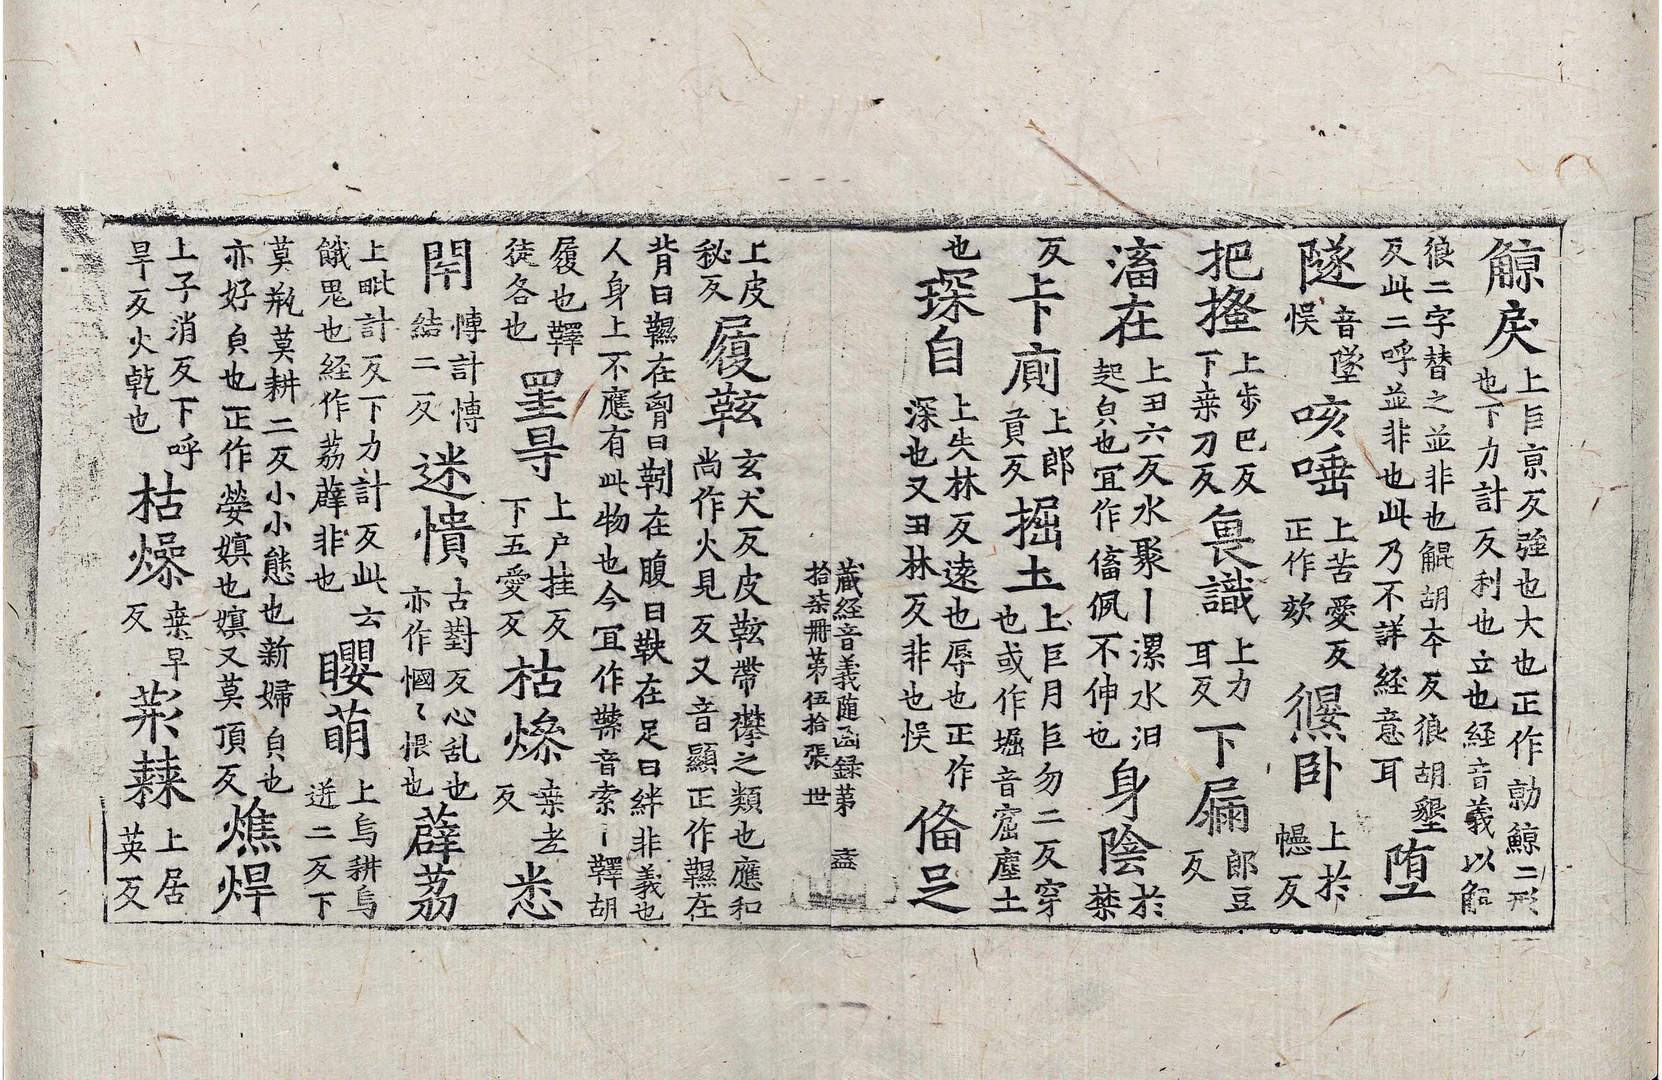 鯨戾上巨京反強也大也正作勍鯨二形也下力計反利也立也経音義以觧
狼二字替之並非也鯤胡本反狼胡墾反此二呼並非也此乃不詳経意耳墮
隧音墜悮咳唾上苦愛反正作欬㣻卧上於㦥反
把搔上步巴反下桒刀反䍐識上力耳反下屚郎豆反
滀在上丑六反水聚丨漯水汨起皃也冝作傗佩不伸也身陰於禁
反上廁上郎貢反掘土上巨月巨勿二反穿也或作堀音窟塵土
也琛自上失林反遠也辱也正作深也又丑林反非也悮俻足
蔵経音義随函録第　盇
拾柒冊第伍拾張　世
上皮秘反履䩙玄犬反皮䩙帶攀之類也應和尚作火見反又音顯正作韅在
背曰韅在胷曰靷在腹曰鞅在足曰絆非義也人身上不應有此物也今冝作䋈音索丨鞾胡
履也鞾徒各也罣㝵上户挂反下五愛反枯㷮桒老反悉
閇愽計愽結二反迷憒古對反心乱也亦作㥒〻悵也薜荔
上毗計反下力計反此云餓鬼也経作荔薜非也䁝萌上烏耕烏迸二反下
莫瓶莫耕二反小小態也新婦皃也亦好皃也正作嫈嫇也嫇又莫頂反燋焊
上子消反下呼旱反火乾也枯燥桒早反荊棘上居英反